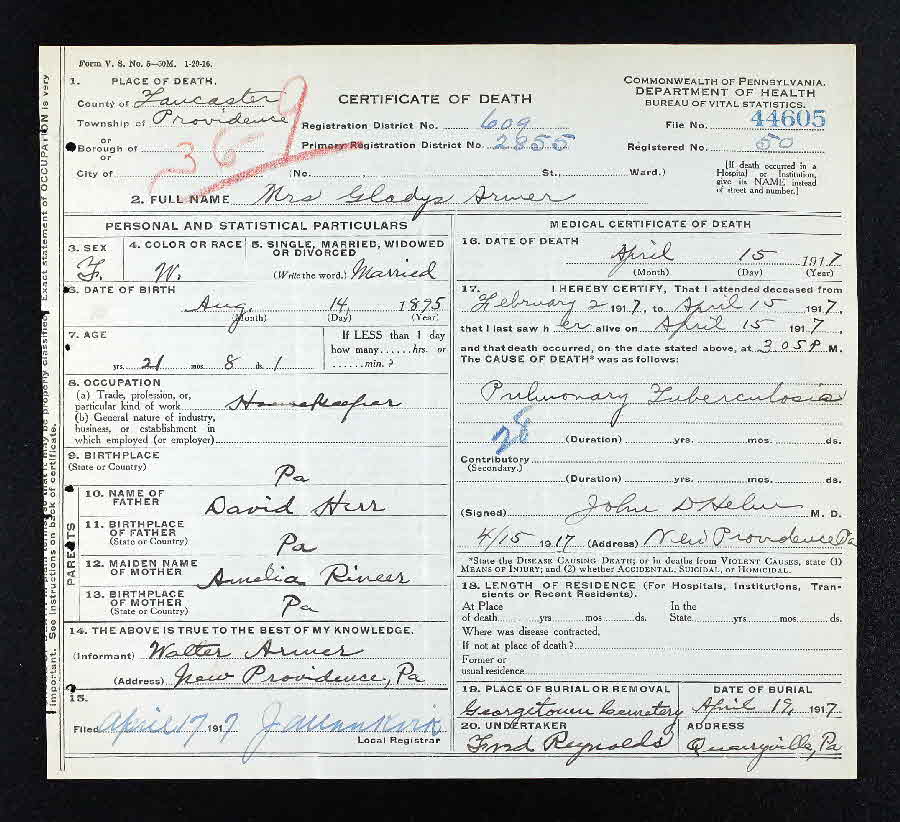 Form V. S. No. 5—50M. 1-20-16.
1. PLACE OF DEATH.
County of Lancaster
Township of Providence
or
Borough of
or
City of
369
CERTIFICATE OF DEATH
Registration District No. 609
Primary Registration District No. 2855
(No. St., Ward.)
COMMONWEALTH OF PENNSYLVANIA.
DEPARTMENT OF HEALTH
BUREAU OF VITAL STATISTICS.
File No. 44605
Registered No. 50
[If death occurred in a
Hospital or Institution,
give its NAME instead
of street and number.]
2. FULL NAME Mrs Gladys Armer
PERSONAL AND STATISTICAL PARTICULARS
3. SEX
F.
4. COLOR OR RACE
W.
5. SINGLE, MARRIED, WIDOWED
OR DIVORCED
(Write the word.) Married
6. DATE OF BIRTH
Aug. 14, 1895
(Month) (Day) (Year)
7. AGE
yrs. 21 mos. 8 ds. 1
If LESS than 1 day
how many......hrs. or
......min.?
8. OCCUPATION
(a) Trade, profession, or,
particular kind of work Housekeeper
(b) General nature of industry,
business, or establishment in
which employed (or employer)
9. BIRTHPLACE
(State or Country)
Pa
PARENTS
10. NAME OF
FATHER
David Herr
11. BIRTHPLACE
OF FATHER
(State or Country)
Pa
12. MAIDEN NAME
OF MOTHER
Amelia Rineer
13. BIRTHPLACE
OF MOTHER
(State or Country)
Pa
14. THE ABOVE IS TRUE TO THE BEST OF MY KNOWLEDGE.
(Informant) Walter Armer
(Address) New Providence, Pa
15.
Filed April 17 1917
Local Registrar
MEDICAL CERTIFICATE OF DEATH
16. DATE OF DEATH
April 15 1917
(Month) (Day) (Year)
17. I HEREBY CERTIFY, That I attended deceased from
February 2 1917, to April 15 1917,
that I last saw her alive on April 15 1917,
and that death occurred, on the date stated above, at 3 05 P M.
The CAUSE OF DEATH* was as follows:
Pulmonary Tuberculosis
28
(Duration) yrs. mos. ds.
Contributory
(Secondary.)
(Duration) yrs. mos. ds.
(Signed) John D Helm M. D.
4/15 1917 (Address) New Providence Pa
*State the DISEASE CAUSING DEATH; or in deaths from VIOLENT CAUSES, state (1)
MEANS OF INJURY; and (2) whether ACCIDENTAL, SUICIDAL, or HOMICIDAL.
18. LENGTH OF RESIDENCE (For Hospitals, Institutions, Tran-
sients or Recent Residents).
At Place
of death yrs mos ds.
In the
State yrs mos ds.
Where was disease contracted,
If not at place of death?
Former or
usual residence
19. PLACE OF BURIAL OR REMOVAL
Georgetown Cemetery
DATE OF BURIAL
April 19, 1917
20. UNDERTAKER
Fred Reynolds
ADDRESS
Quarryville, Pa
Exact statement of OCCUPATION is very
important. See instructions on back of certificate.